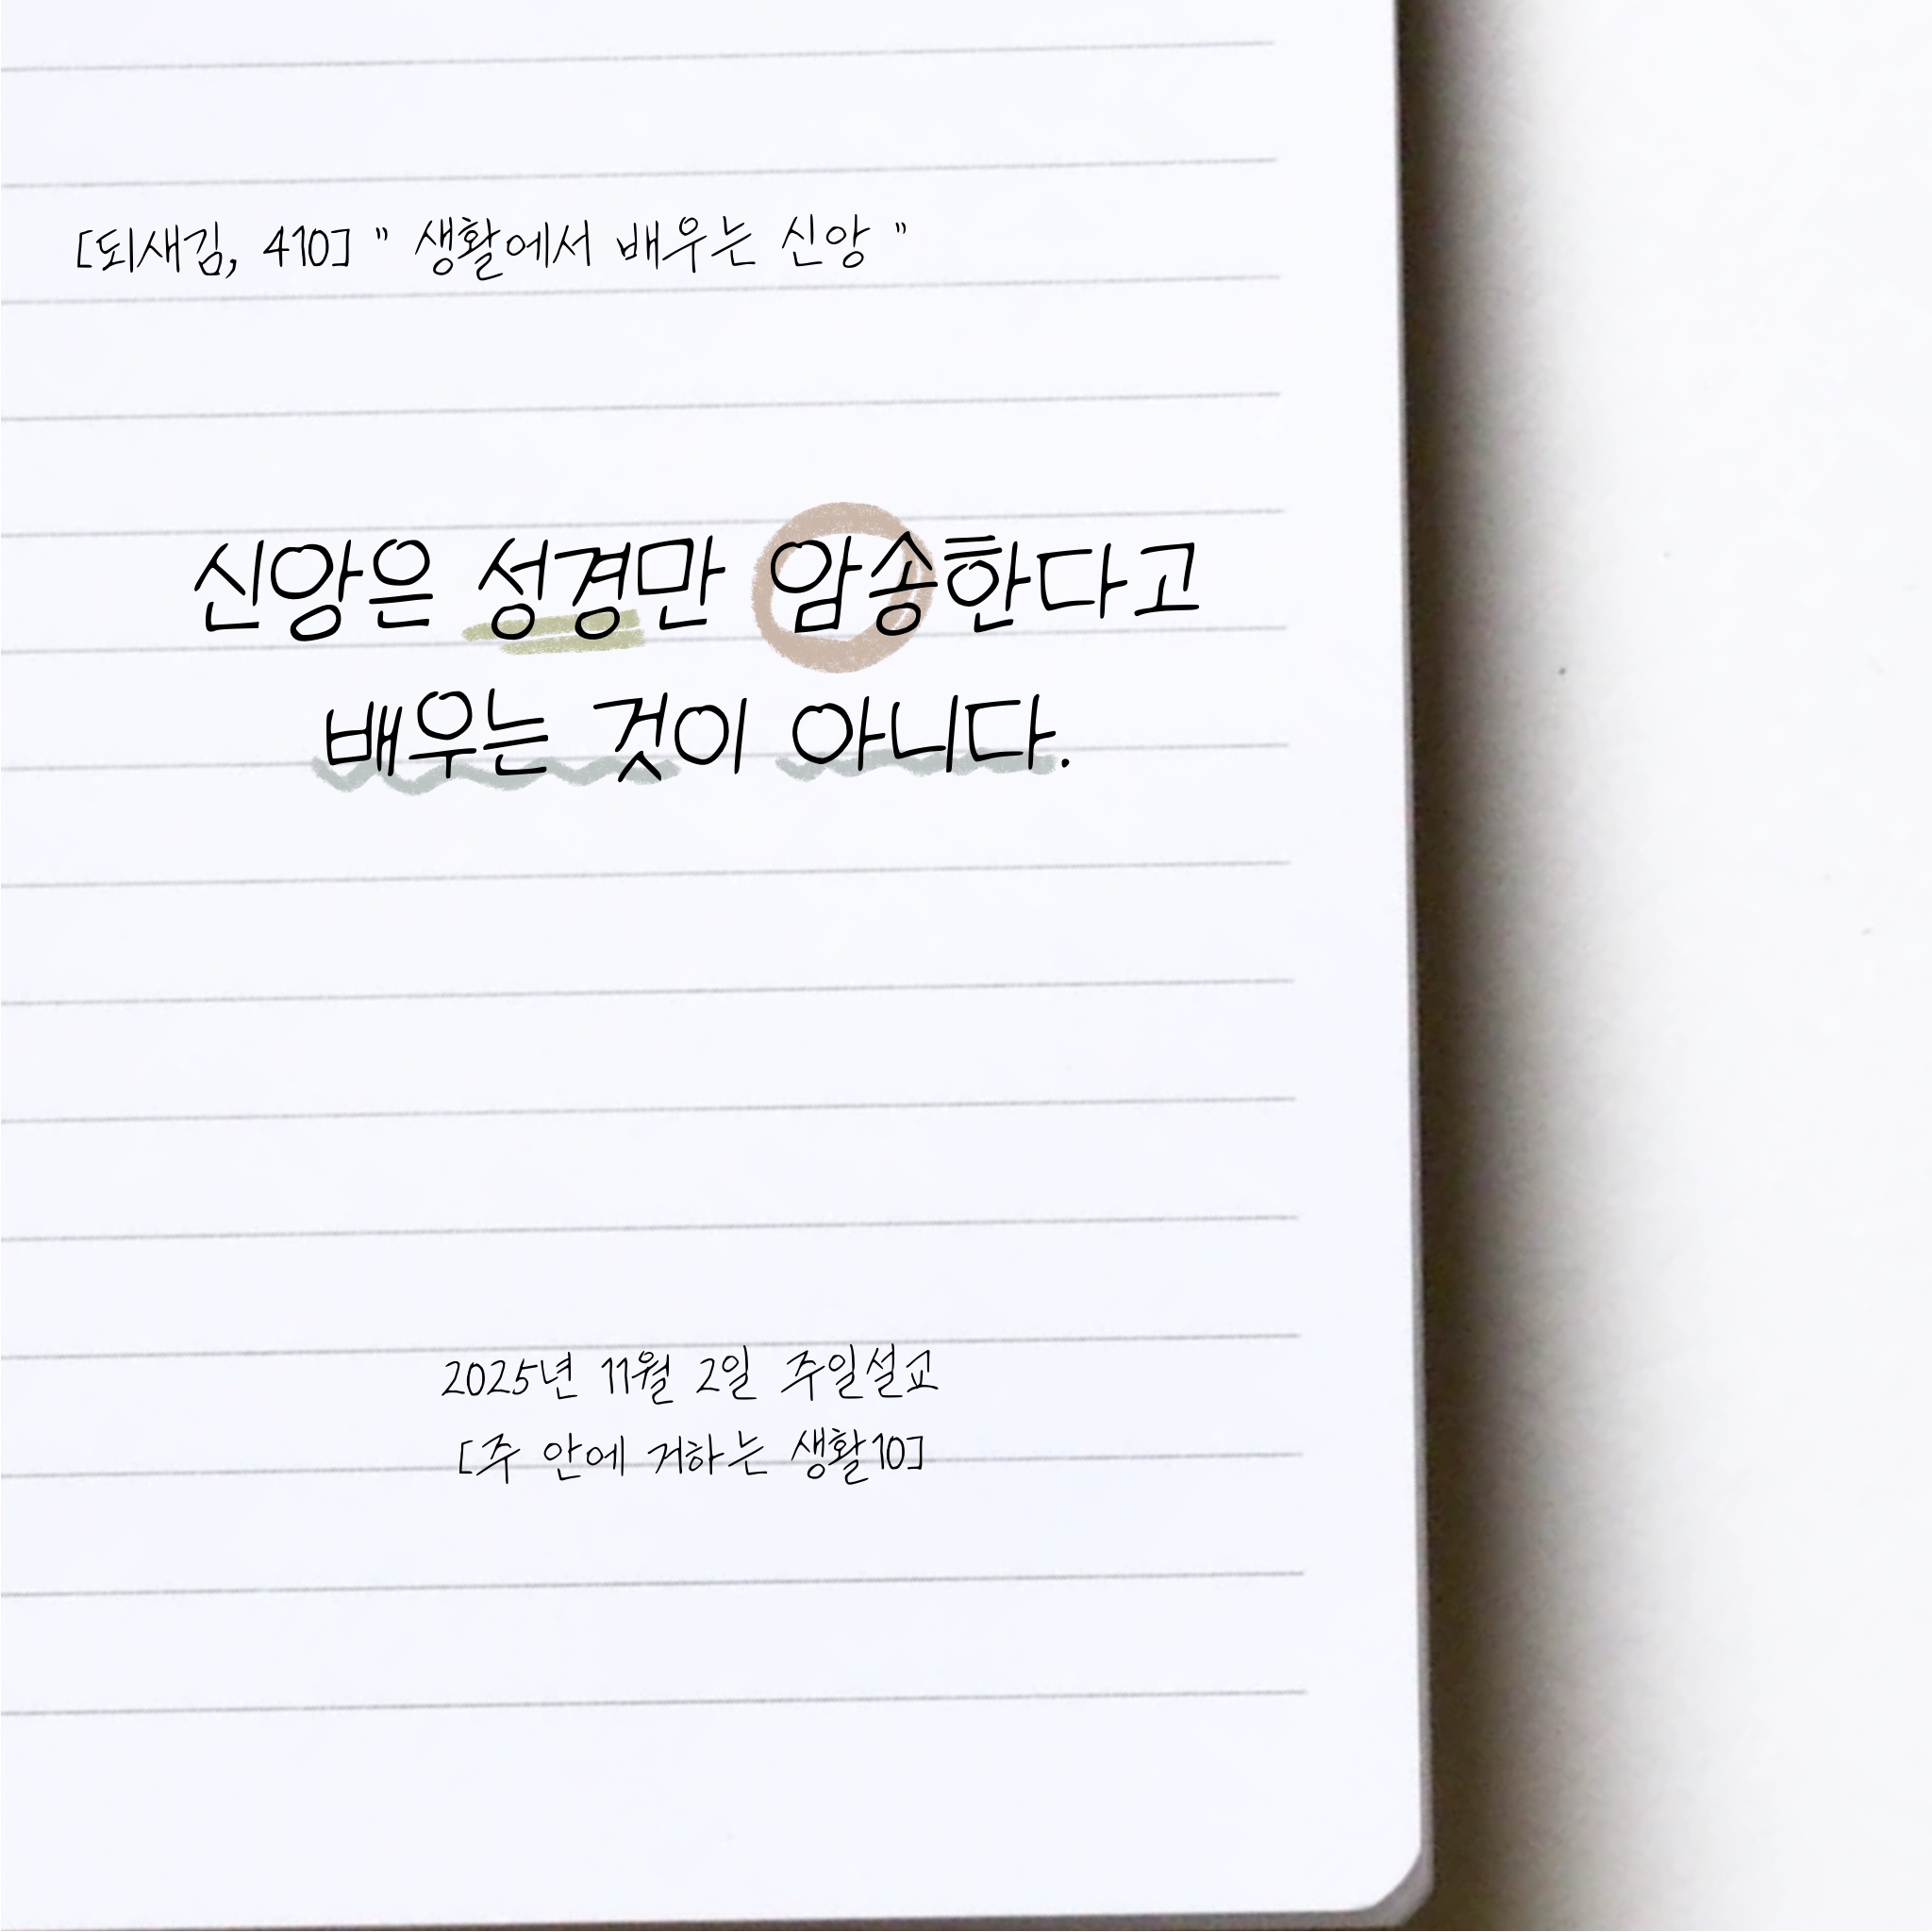 [되새김, 410] " 생활에서 배우는 신앙 "
신앙은 성경만 암송한다고
배우는 것이 아니다.
2025년 11월 2일 주일설교
[주 안에 거하는 생활10]